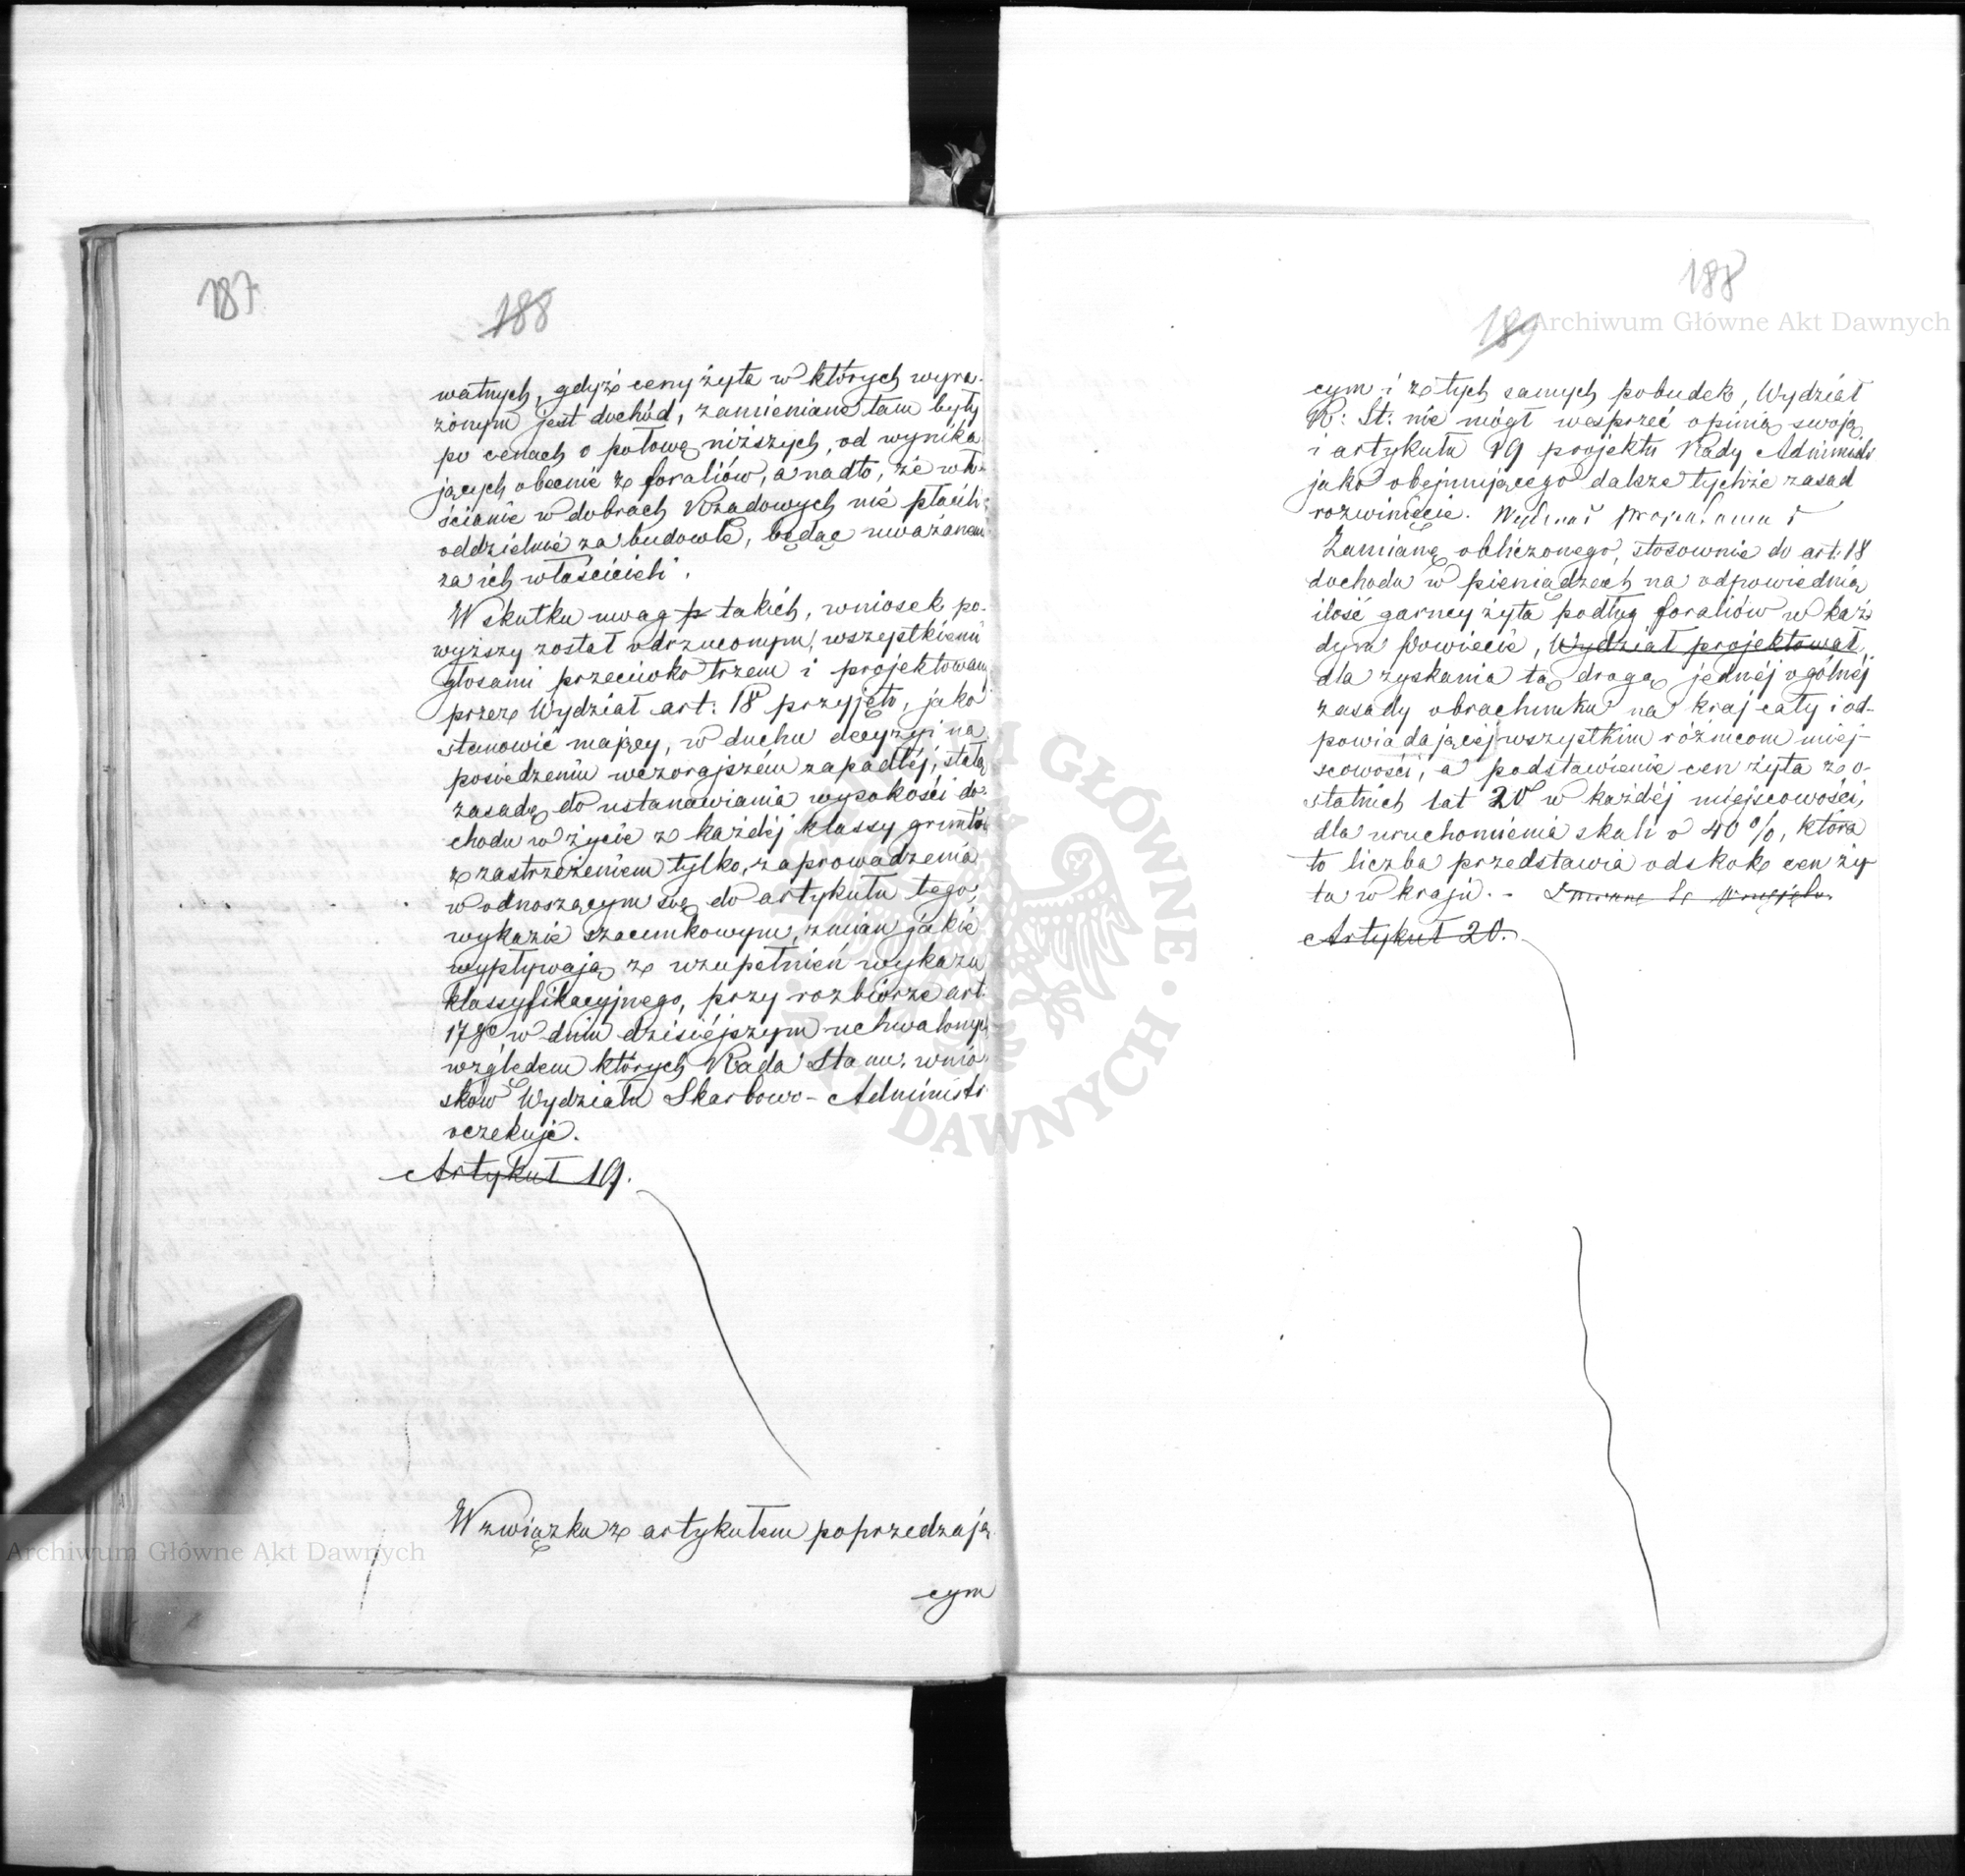 187
188
watnych, gdyż ceny żyta w których wyra-
żonym jest dochód, zamieniane tam były
po cenach o połowę niższych, od wynika
jących obecnie z foraliów, a nadto, że wło-
ścianie w dobrach Rządowych nie płacili
oddzielnie za budowle, będąc uważanemi
za ich właścicieli.
W skutku uwag p takich, wniosek po-
wyższy został odrzuconym, wszystkiemi
głosami przeciwko trzem i projektowany
przez Wydział art: 18 przyjęto, jako
stanowić mający, w duchu decyzyi na
posiedzeniu wczorajszém zapadłéj, stałą
zasadę do ustanawiania wysokości do-
chodu w życie z każdéj klassy gruntów
z zastrzeżeniem tylko, zaprowadzenia
w odnoszącym się do artykułu tego,
wykazie szacunkowym, zmian jakie
wypływają z uzupełnień wykazu
klassyfikacyjnego, przy rozbiorze art:
17go w dniu dzisiéjszym uchwalonych
względem których Rada Stanu, wnio-
sków Wydziału Skarbowo-Administr
oczekuje.
Artykuł 19.
W związku z artykułem poprzedzają
cym
188
189
cym i z tych samych pobudek, Wydział
R: St: nie mógł wesprzeć opinią swoją
i artykułu 19 projektu Rady Administr
jako obejmującego dalsze tychże zasad
rozwinięcie. Wydział projektował
Zamianę obliczonego, stosownie do art: 18
dochodu w pieniądzach na odpowiednią
ilość garncy żyta podług foraliów w każ
dym Powiecie, Wydział projektował,
dla zyskania tą drogą jednéj ogólnéj
zasady obrachunku na kraj cały i od-
powiadającéj wszystkim różnicom miéj-
scowości, a podstawienie cen żyta z o-
statnich lat 20 w każdéj miejscowości,
dla uruchomienia skali o 40 %, która
to liczba przedstawia odskok cen ży-
ta w kraju. -
Artykuł 20.
Archiwum Główne Akt Dawnych
Archiwum Główne Akt Dawnych
ARCHIWUM GŁÓWNE AKT DAWNYCH